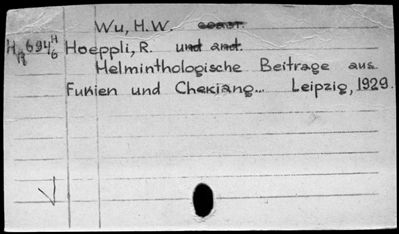 Wu, H.W.
HR694H6 Hoeppli, R. und and.
Helminthologische Beitrage aus
Fukien und Chekiang... Leipzig, 1929.